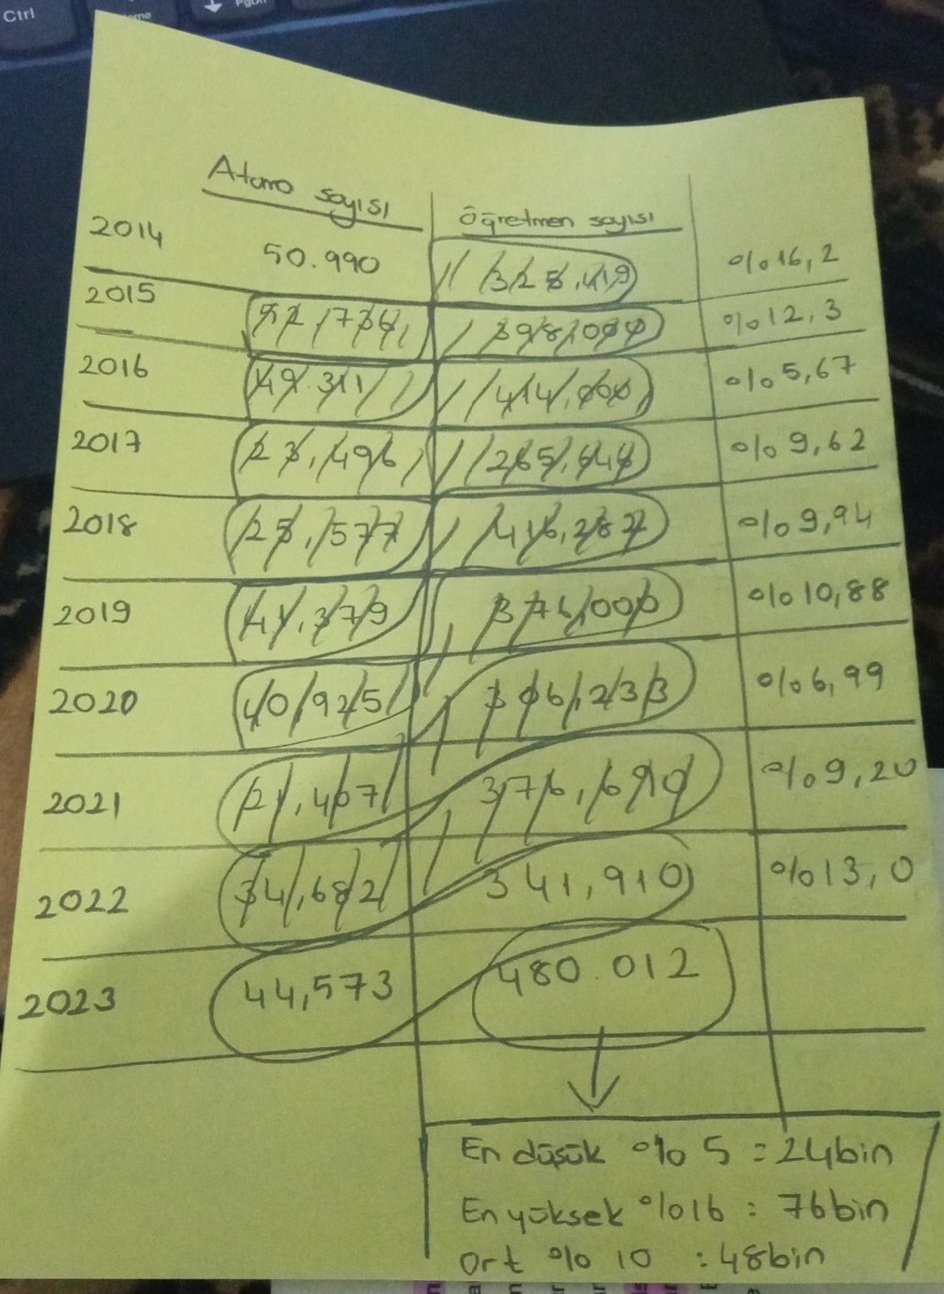 Ctrl
Atama sayısı
Öğretmen sayısı
2014 50.990 325.419 %16,2
2015 52,734 398,099 %12,3
2016 49.311 414,000 %5,67
2017 23,496 265,648 %9,62
2018 25,577 416,287 %9,94
2019 41,379 376,000 %10,88
2020 40,925 306,233 %6,99
2021 21,407 376,690 %9,20
2022 34,682 341,910 %13,0
2023 44,573 480.012
En düşük %5 = 24bin
En yüksek %16 : 76bin
Ort %10 : 48bin